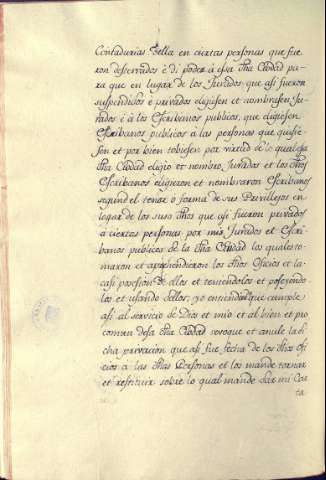 Contadurias della en ciertas personas que fue
ron desterrados é di poder á essa dha Ciudad pa
ra que en lugar de los Jurados que asi fueron
suspendidos é privados eligiesen et nombrasen Ju-
rados é á los Escribanos publicos, que eligiesen
Escribanos publicos á las personas que quisie-
sen et por bien tobiesen por virtud de lo qual esa
dha Ciudad eligio et nombro Jurados et los dhos
Escribanos eligieron et nombraron Escribanos
segund el tenor é forma de sus Previllejos en
legar de los suso dhos que asi fueron privados
á ciertas personas por mis Jurados et Escri-
banos publicos de la dha Ciudad los quales to-
maron et aprehendieron los dhos Oficios et la
casi posesion de ellos et teniendolos et poseyendo-
los et usando dellos, yo entiendo que cumple
asi al servicio de Dios et mio et al bien et pro
comun desa dha Ciudad revoque et anule la di-
cha privacion que asi fue fecha de los dhos ofi
cios á las dhas Personas et los mande tornar
et restituir sobre lo qual mande dar mi Car
ta